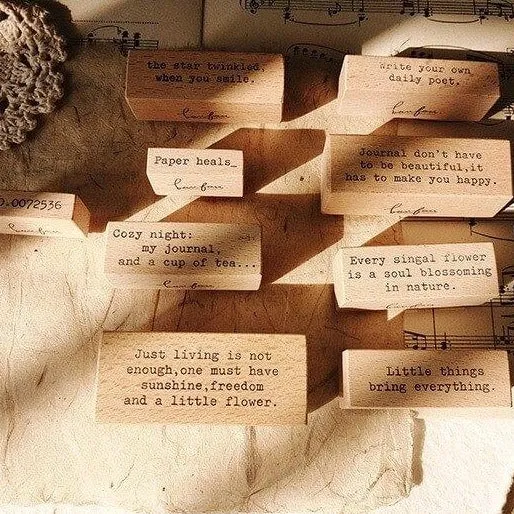 the star twinkled,
when you smile.
Write your own
daily poet.
Paper heals_
Journal don't have
to be beautiful,it
has to make you happy.
.0072536
Cozy night:
my journal,
and a cup of tea...
Every singal flower
is a soul blossoming
in nature.
Just living is not
enough,one must have
sunshine,freedom
and a little flower.
Little things
bring everything.